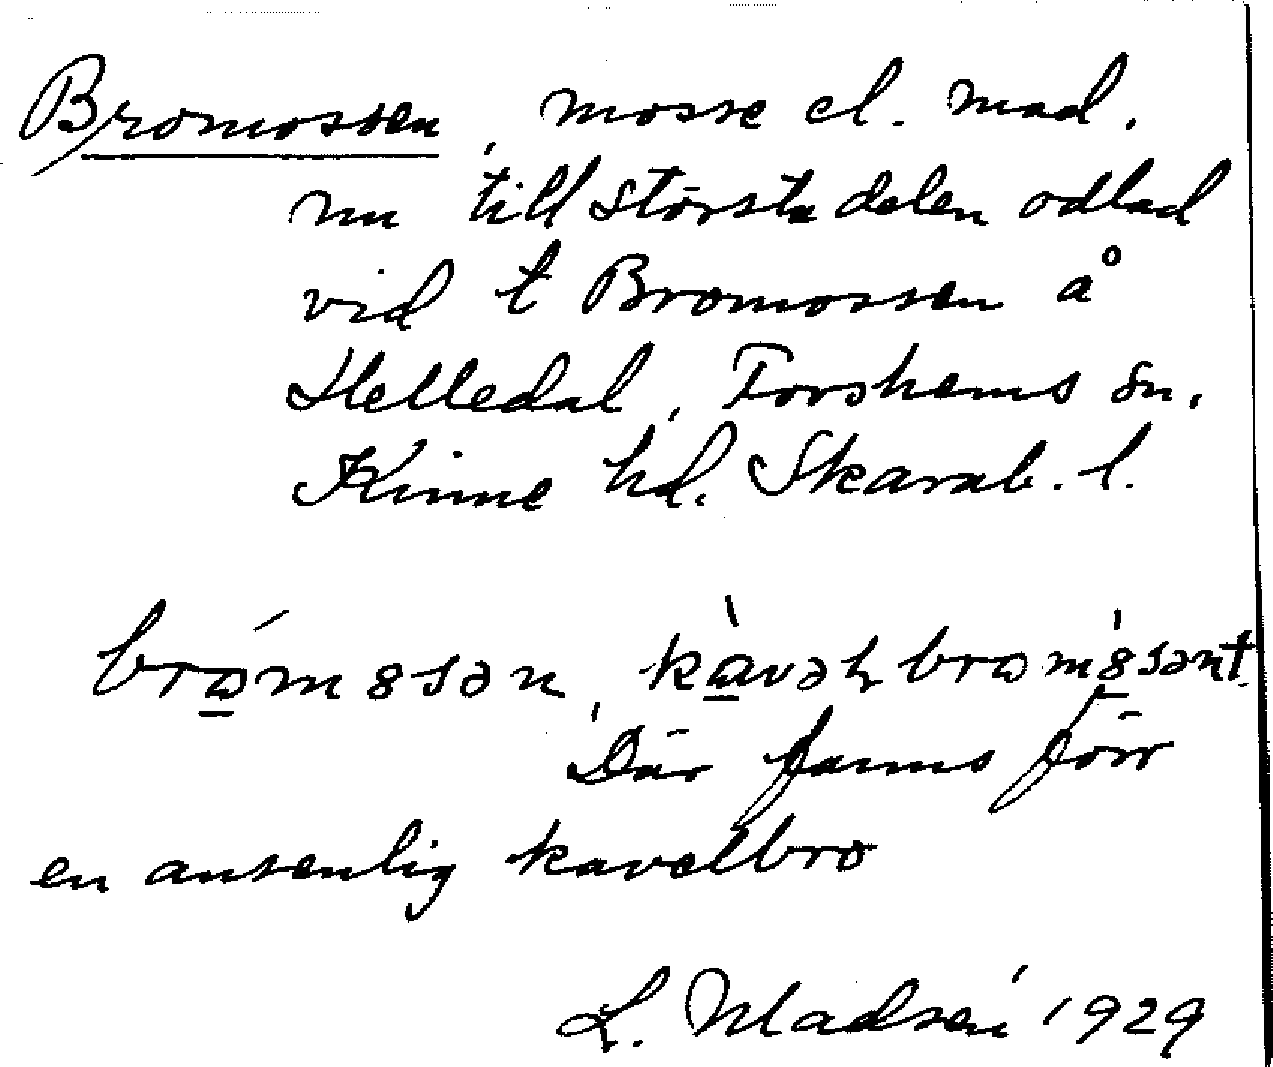 Bromossen, mosse el. mad,
nu till största delen odlad
vid t Bromossen å
Helledal, Forshems sn,
Kinne hd. Skarab. l.
Där fanns förr
en ansenlig kavelbro
L. Madsén 1929